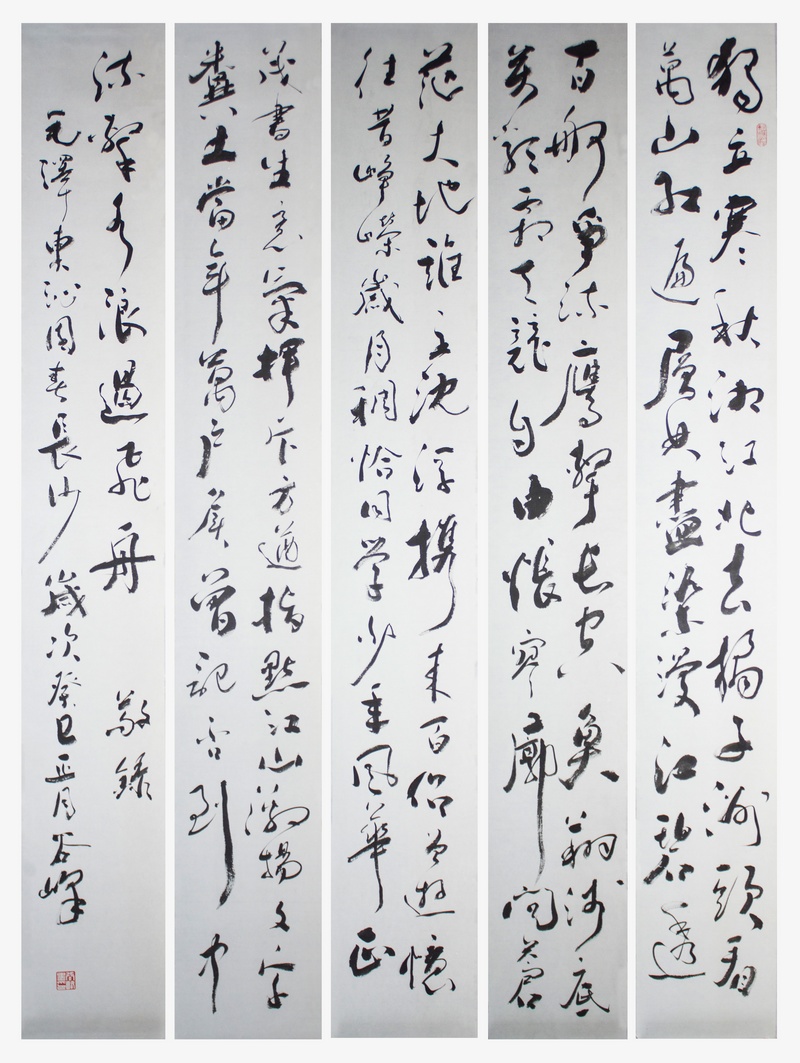 獨立寒秋湘江北去橘子洲頭看
萬山紅遍層林盡染漫江碧透
百舸爭流鷹擊長空魚翔淺底
萬類霜天競自由悵寥廓問蒼
茫大地誰主沈浮攜來百侶曾遊憶
往昔崢嶸歲月稠恰同學少年風華正
茂書生意氣揮斥方遒指點江山激揚文字
糞土當年萬戶侯曾記否到中
流擊水浪遏飛舟 敬錄
毛澤東沁園春長沙歲次癸巳正月谷峰